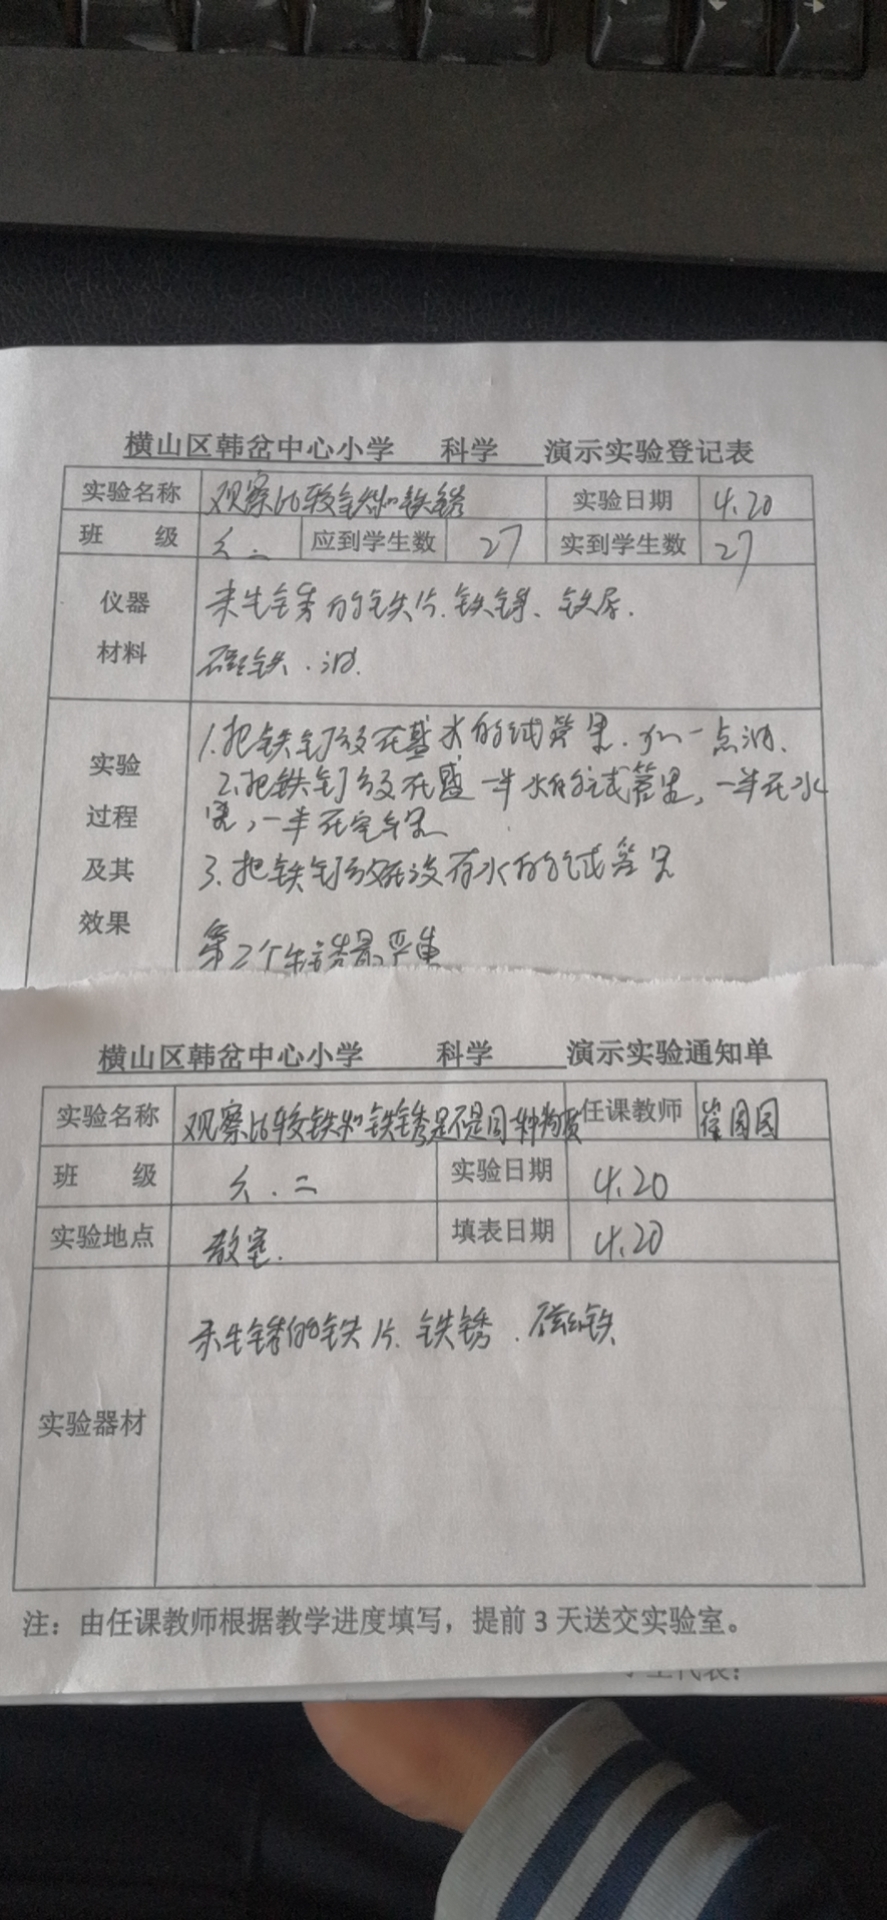 横山区韩岔中心小学 科学 演示实验登记表
实验名称 观察比较铁和铁锈 实验日期 4.20
班 级 六二 应到学生数 27 实到学生数 27
仪器 未生锈的铁片.铁锈、铁屑.
材料 磁铁.油.
1.把铁钉放在盛水的试管里.加一点油.
实验 2.把铁钉放在盛一半水的试管里,一半在水
过程 里,一半在空气里
及其 3.把铁钉放在没有水的试管里
效果
第2个生锈最严重
横山区韩岔中心小学 科学 演示实验通知单
实验名称 观察比较铁和铁锈是不是同一种物质 任课教师 崔园园
班 级 六.二 实验日期 4.20
实验地点 教室. 填表日期 4.20
未生锈的铁片.铁锈.磁铁
实验器材
注：由任课教师根据教学进度填写，提前 3 天送交实验室。